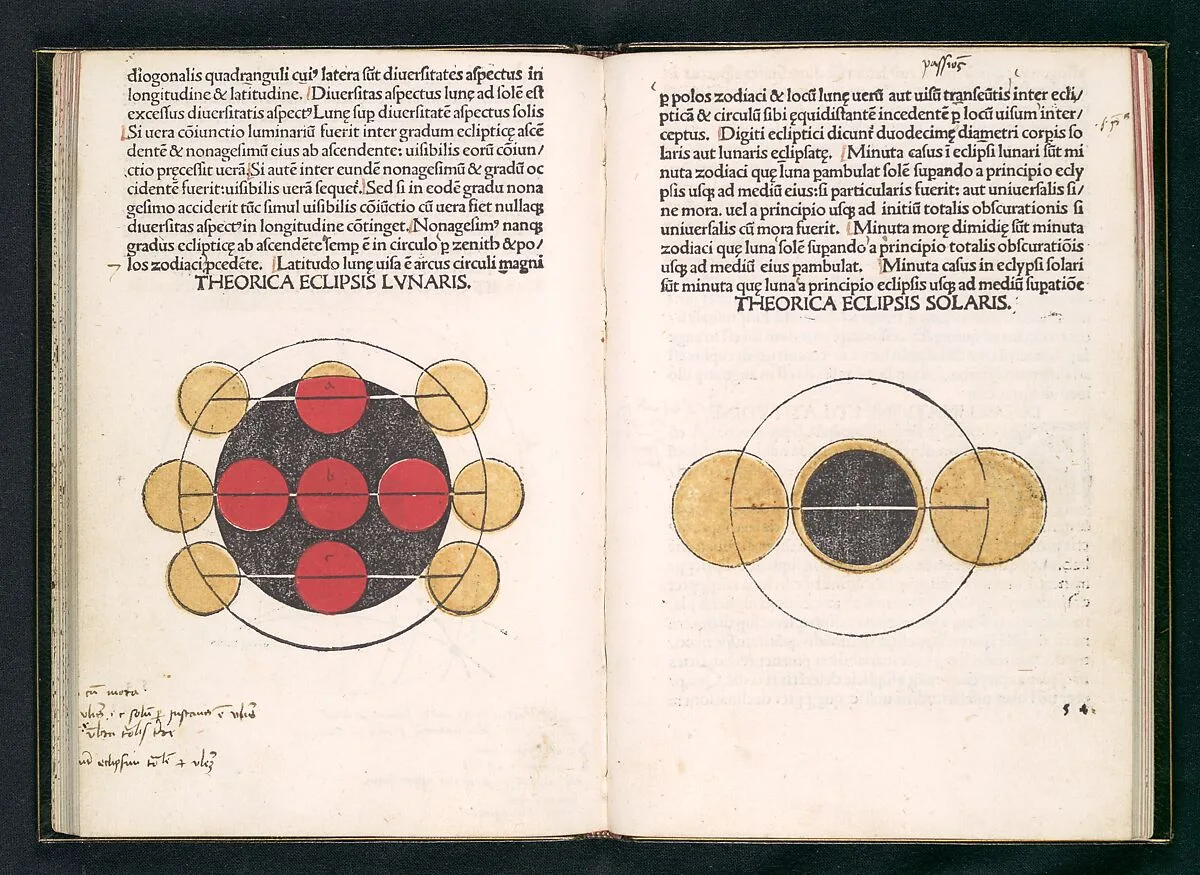 diogonalis quadranguli cui⁹ latera sūt diuersitates aspectus in
longitudine & latitudine. Diuersitas aspectus lunę ad solē est
excessus diuersitatis aspect⁹ Lunę sup diuersitatē aspectus solis
Si uera cōiunctio luminariū fuerit inter gradum eclipticę ascē
dentē & nonagesimū eius ab ascendente: uisibilis eorū cōiun/
ctio pręcessit uerā. Si autē inter eundē nonagesimū & gradū oc
cidentē fuerit: uisibilis uerā sequet̄. Sed si in eodē gradu nona
gesimo acciderit tūc simul uisibilis cōiūctio cū uera fiet nullaqꝫ
diuersitas aspect⁹ in longitudine cōtinget. Nonagesim⁹ nanqꝫ
gradus eclipticę ab ascendēte semp ē in circulo p zenith & po/
los zodiaci ꝓcedēte. Latitudo lunę uisa ē arcus circuli magni
THEORICA ECLIPSIS LVNARIS.
a
b
c
cū mora
passiōis
ꝑ polos zodiaci & locū lunę uerū aut uisū transeūtis inter ecli/
pticā & circulū sibi ęquidistantē incedentē ꝑ locū uisum inter/
ceptus. Digiti ecliptici dicunt̄ duodecimę diametri corpis so
laris aut lunaris eclipsatę. Minuta casus ī eclipsi lunari sūt mi
nuta zodiaci quę luna pambulat solē supando a principio ecly
psis usqꝫ ad mediū eius: si particularis fuerit: aut uniuersalis si/
ne mora. uel a principio usqꝫ ad initiū totalis obscurationis si
uniuersalis cū mora fuerit. Minuta morę dimidię sūt minuta
zodiaci quę luna solē supando a principio totalis obscuratiōis
usqꝫ ad mediū eius pambulat. Minuta casus in eclypsi solari
sūt minuta quę luna a principio eclipsis usqꝫ ad mediū supatiōe
THEORICA ECLIPSIS SOLARIS.
54.